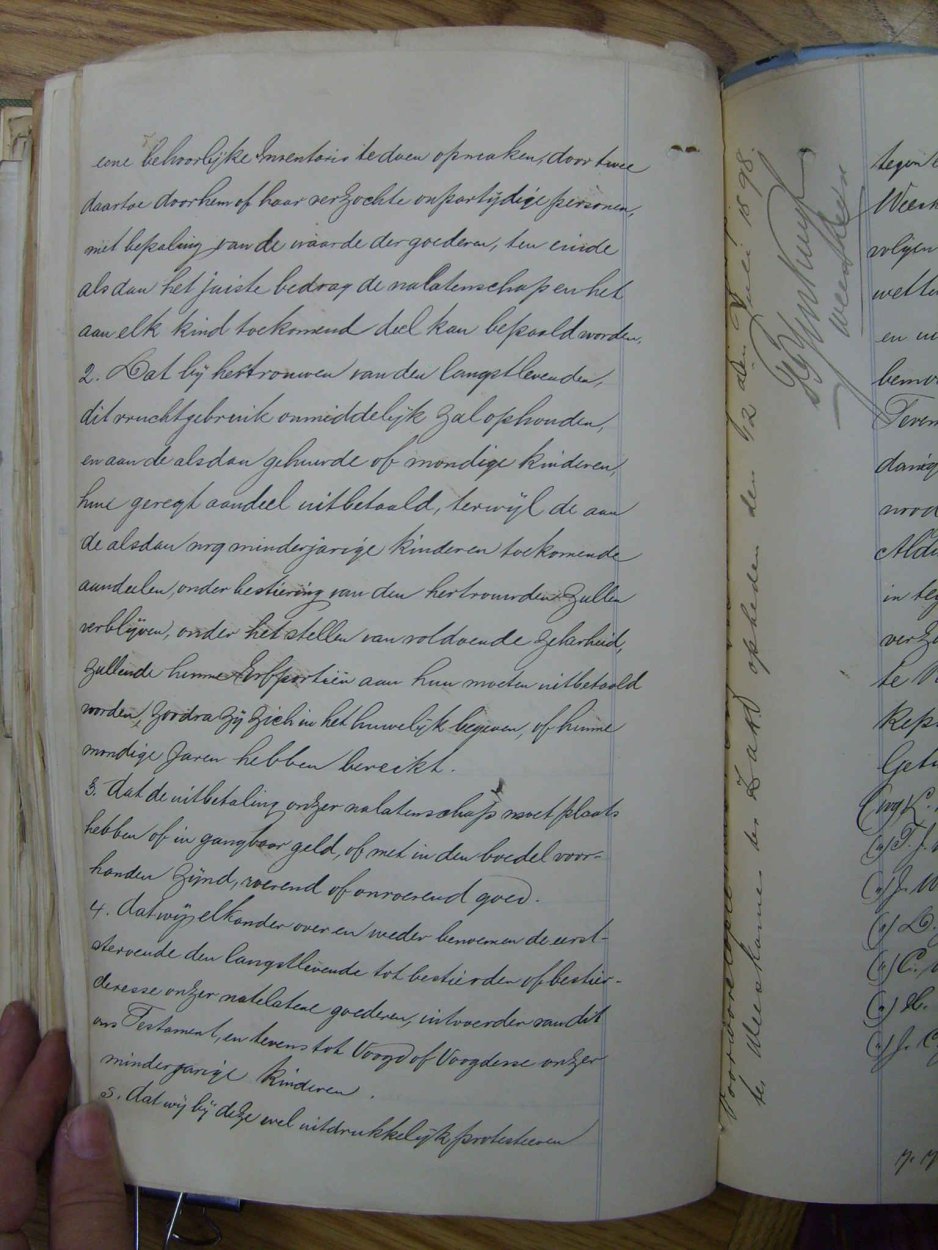 eene behoorlijke Inventaris te doen opmaken, door twee
daartoe door hem of haar verzochte onpartijdige personen,
met bepaling van de waarde der goederen, ten einde
alsdan het juiste bedrag de nalatenschap en het
aan elk kind toekomend deel kan bepaald worden.
2. Dat bij hertrouwen van den langstlevenden,
dit vruchtgebruik onmiddelijk zal ophouden,
en aan de alsdan gehuwde of mondige kinderen,
hune geregt aandeel uitbetaald, terwijl de aan
de alsdan nog minderjarige kinderen toekomende
aandeelen, onder bestiering van den hertrouwden zullen
verblijven, onder het stellen van voldoende zekerheid,
zullende hunne Erfportiën aan hun moeten uitbetaald
worden, zoodra zij zich in het huwelijk begeven, of hunne
mondige Jaren hebben bereikt.
3. dat de uitbetaling onzer nalatenschap moet plaats
hebben of in gangbaar geld, of met in den boedel voor-
handen zijnd, roerend of onroerend goed.
4. dat wij elkander over en weder benoemen de eerst-
stervende den langstlevende tot bestierder of bestier-
deresse onzer natelatene goederen, uitvoerder van dit
ons Testament, en tevens tot Voogd of Voogdesse onzer
minderjarige kinderen.
5. dat wij bij deze wel uitdrukkelijk protesteeren
te Weeskamer der ZAR opheden den 1/2 den Juli 1898.
weesheer
tegen
Weesk
volgen
wette
en
bemo
Teven
danig
nood
Aldu
in teg
verz
te
Rep
Getu
(w.g.)
(,,) T. J.
(,,) J. W
(,,) L.
(,,) C.
(,,) H.
(,,) J. C